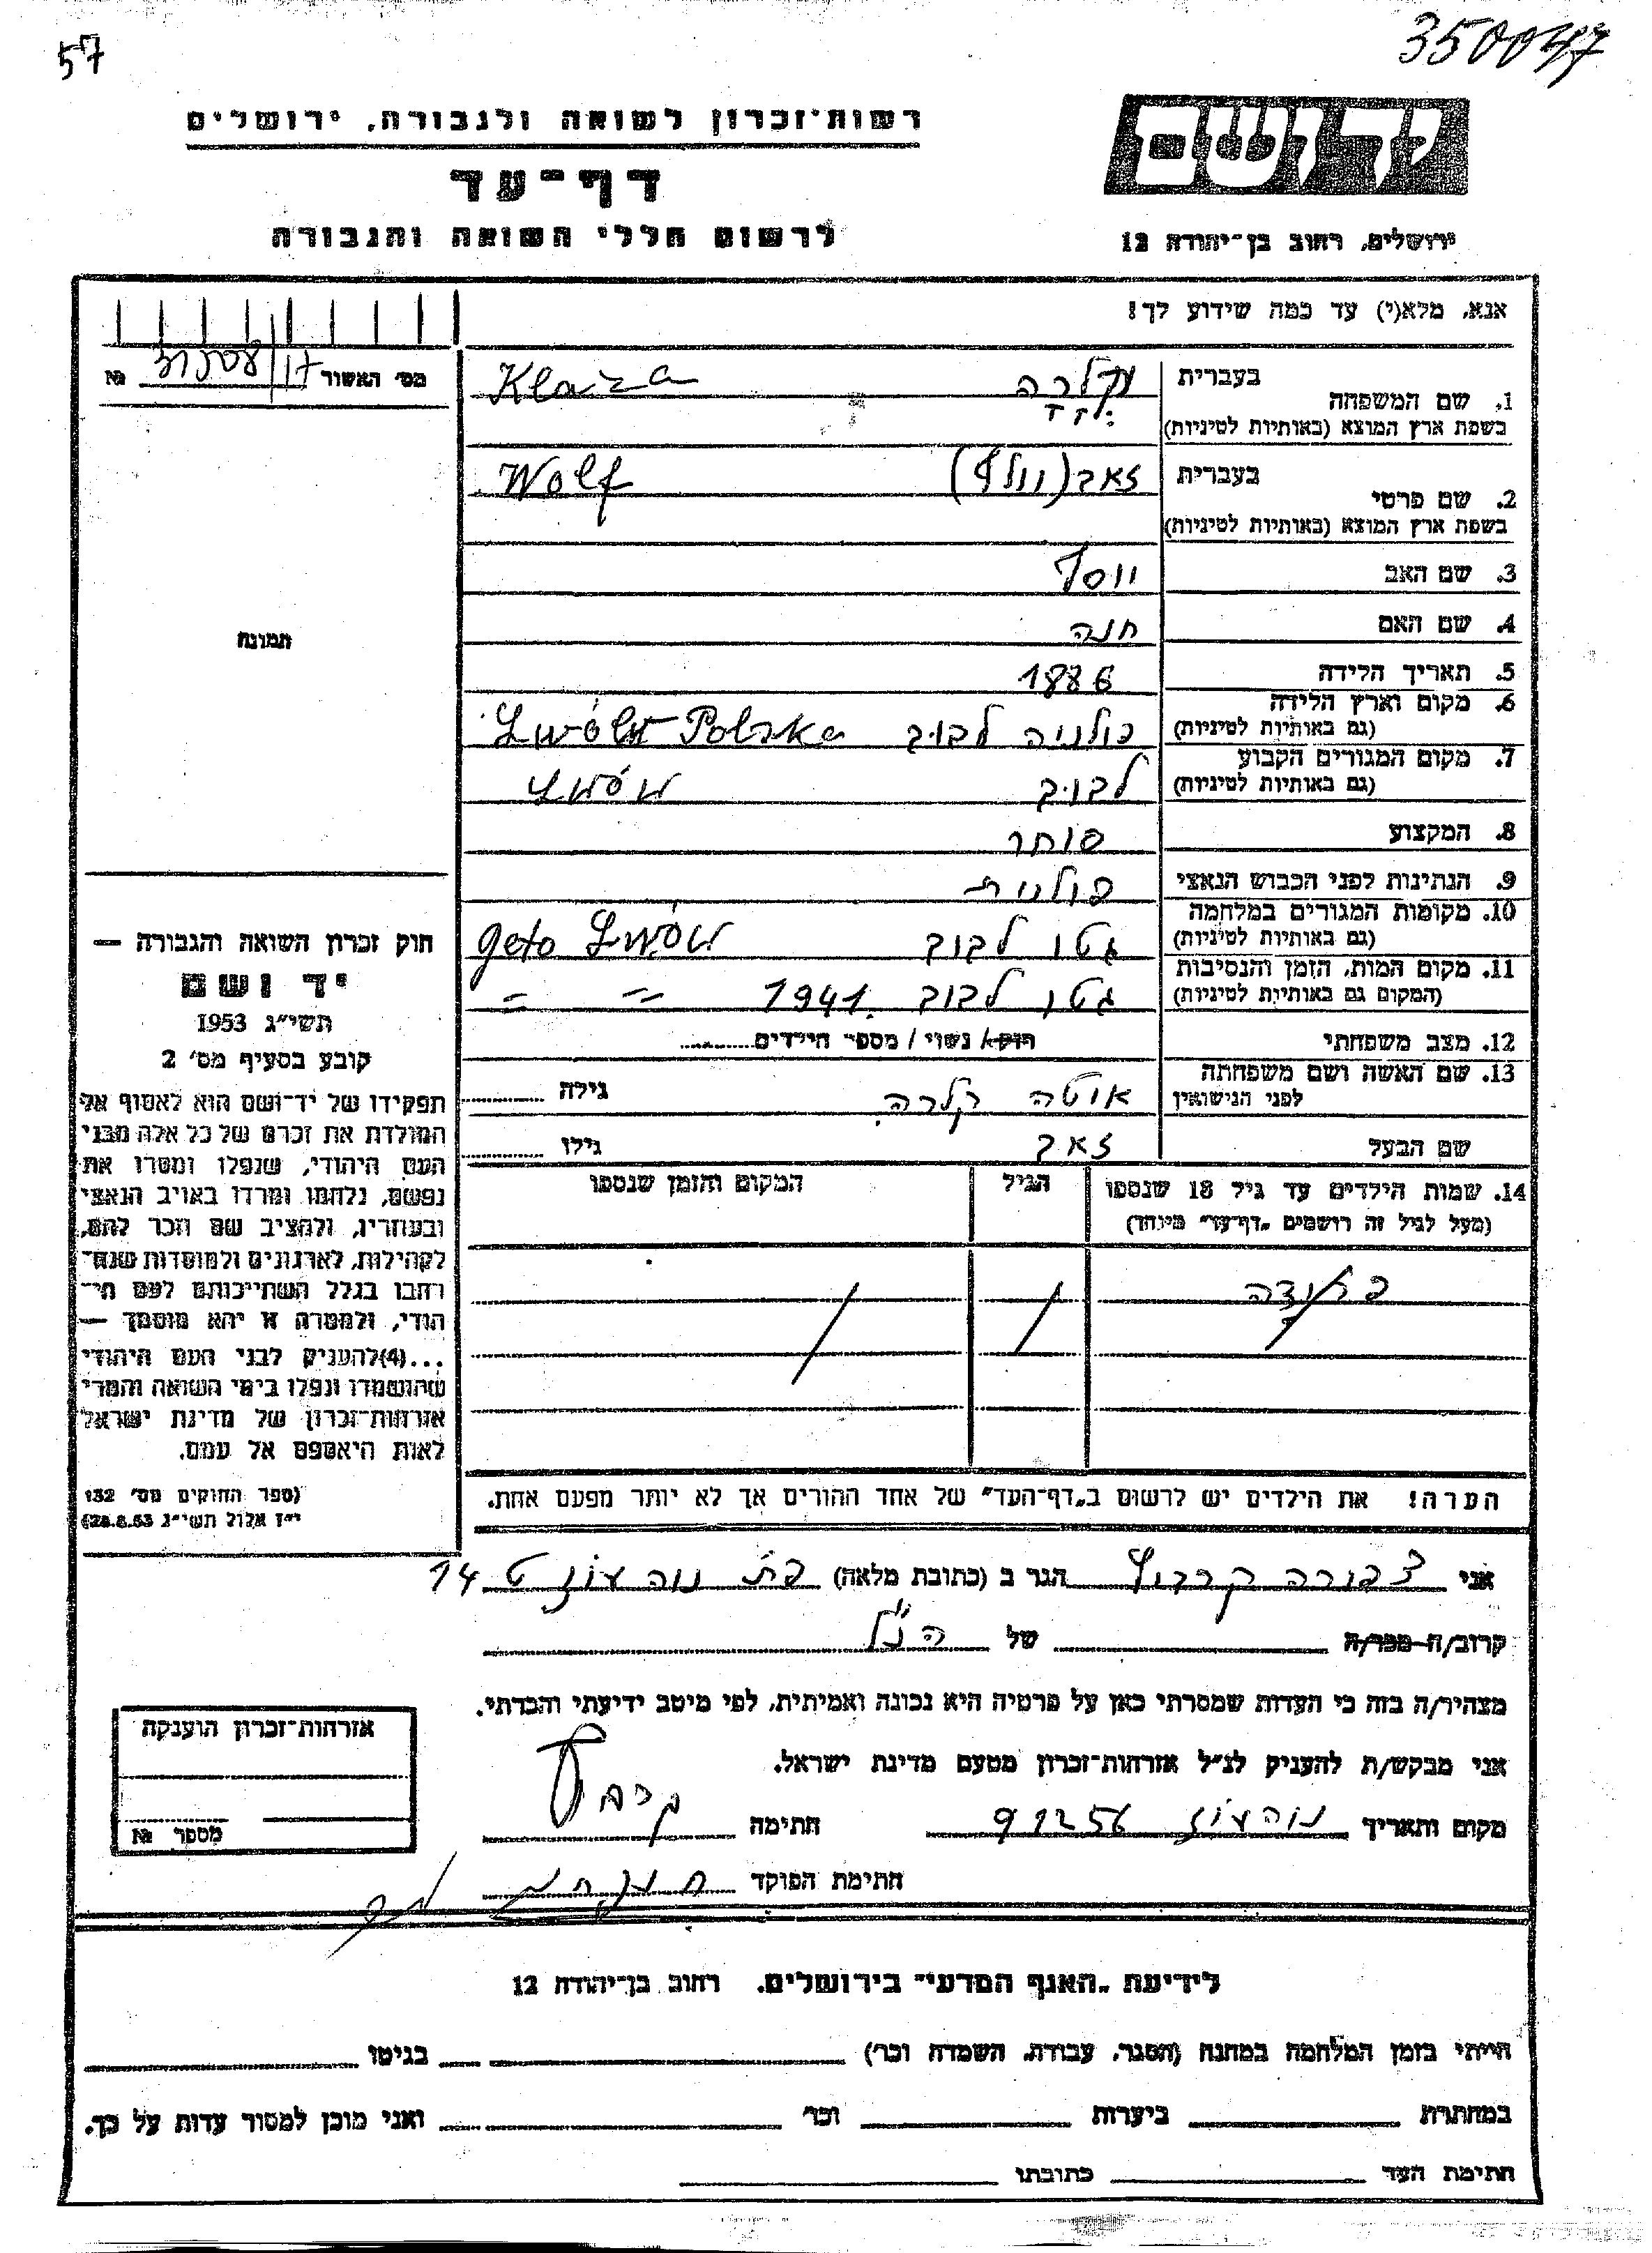 57
350047
רשות־זכרון לשואה ולגבורה, ירושלים
דף־עד
לרשום חללי השואה והגבורה
יד ושם
ירושלים, רחוב בן־יהודה 12
אנא, מלא(י) עד כמה שידוע לך!
מס׳ האשור №
1. שם המשפחה בעברית קלרה Klara
בשפת ארץ המוצא (באותיות לטיניות)
2. שם פרטי בעברית זאב (וולף) Wolf
בשפת ארץ המוצא (באותיות לטיניות)
3. שם האב יוסף
4. שם האם חנה
5. תאריך הלידה 1886
6. מקום וארץ הלידה (גם באותיות לטיניות) פולניה לבוב Lwów Polska
7. מקום המגורים הקבוע (גם באותיות לטיניות) לבוב Lwów
8. המקצוע סוחר
9. הנתינות לפני הכבוש הנאצי פולנית
10. מקומות המגורים במלחמה (גם באותיות לטיניות) גטו לבוב geto Lwów
11. מקום המות, הזמן והנסיבות (המקום גם באותיות לטיניות) גטו לבוב 1941. = =
12. מצב משפחתי רווק/ נשוי / מספר הילדים
13. שם האשה ושם משפחתה לפני הנישואין אוטה קלרה. גילה
שם הבעל זאב גילו
14. שמות הילדים עד גיל 18 שנספו הגיל המקום והזמן שנספו
(מעל לגיל זה רושמים „דף־עד״ מיוחד)
הערה! את הילדים יש לרשום ב„דף־העד״ של אחד ההורים אך לא יותר מפעם אחת.
תמונה
חוק זכרון השואה והגבורה —
יד ושם
תשי״ג 1953
קובע בסעיף מס׳ 2
תפקידו של יד־ושם הוא לאסוף אל
המולדת את זכרם של כל אלה מבני
העם היהודי, שנפלו ומסרו את
נפשם, נלחמו ומרדו באויב הנאצי
ובעוזריו, ולהציב שם וזכר להם,
לקהילות, לארגונים ולמוסדות שנח־
רבו בגלל השתייכותם לעם הי־
הודי, ולמטרה זו יהא מוסמך —
...(4)להעניק לבני העם היהודי
שהושמדו ונפלו בימי השואה והמרי
אזרחות־זכרון של מדינת ישראל
לאות היאספם אל עמם.
(ספר החוקים מס׳ 132
י״ז אלול תשי״ג 28.8.53)
אני צפורה קרפוף הגר ב (כתובת מלאה) נוה עוז 14
קרוב/ה מכר/ה של הנ״ל
מצהיר/ה בזה כי העדות שמסרתי כאן על פרטיה היא נכונה ואמיתית, לפי מיטב ידיעתי והכרתי.
אני מבקש/ת להעניק לנ״ל אזרחות־זכרון מטעם מדינת ישראל.
מקום ותאריך נוה עוז 91256 חתימה
חתימת הפוקד
אזרחות־זכרון הוענקה
מספר №
לידיעת „האגף המדעי״ בירושלים. רחוב בן־יהודה 12
הייתי בזמן המלחמה במחנה (הסגר, עבודה, השמדה וכו׳) בגיטו
במחתרת ביערות וכו׳ ואני מוכן למסור עדות על כך.
חתימת העד כתובתו